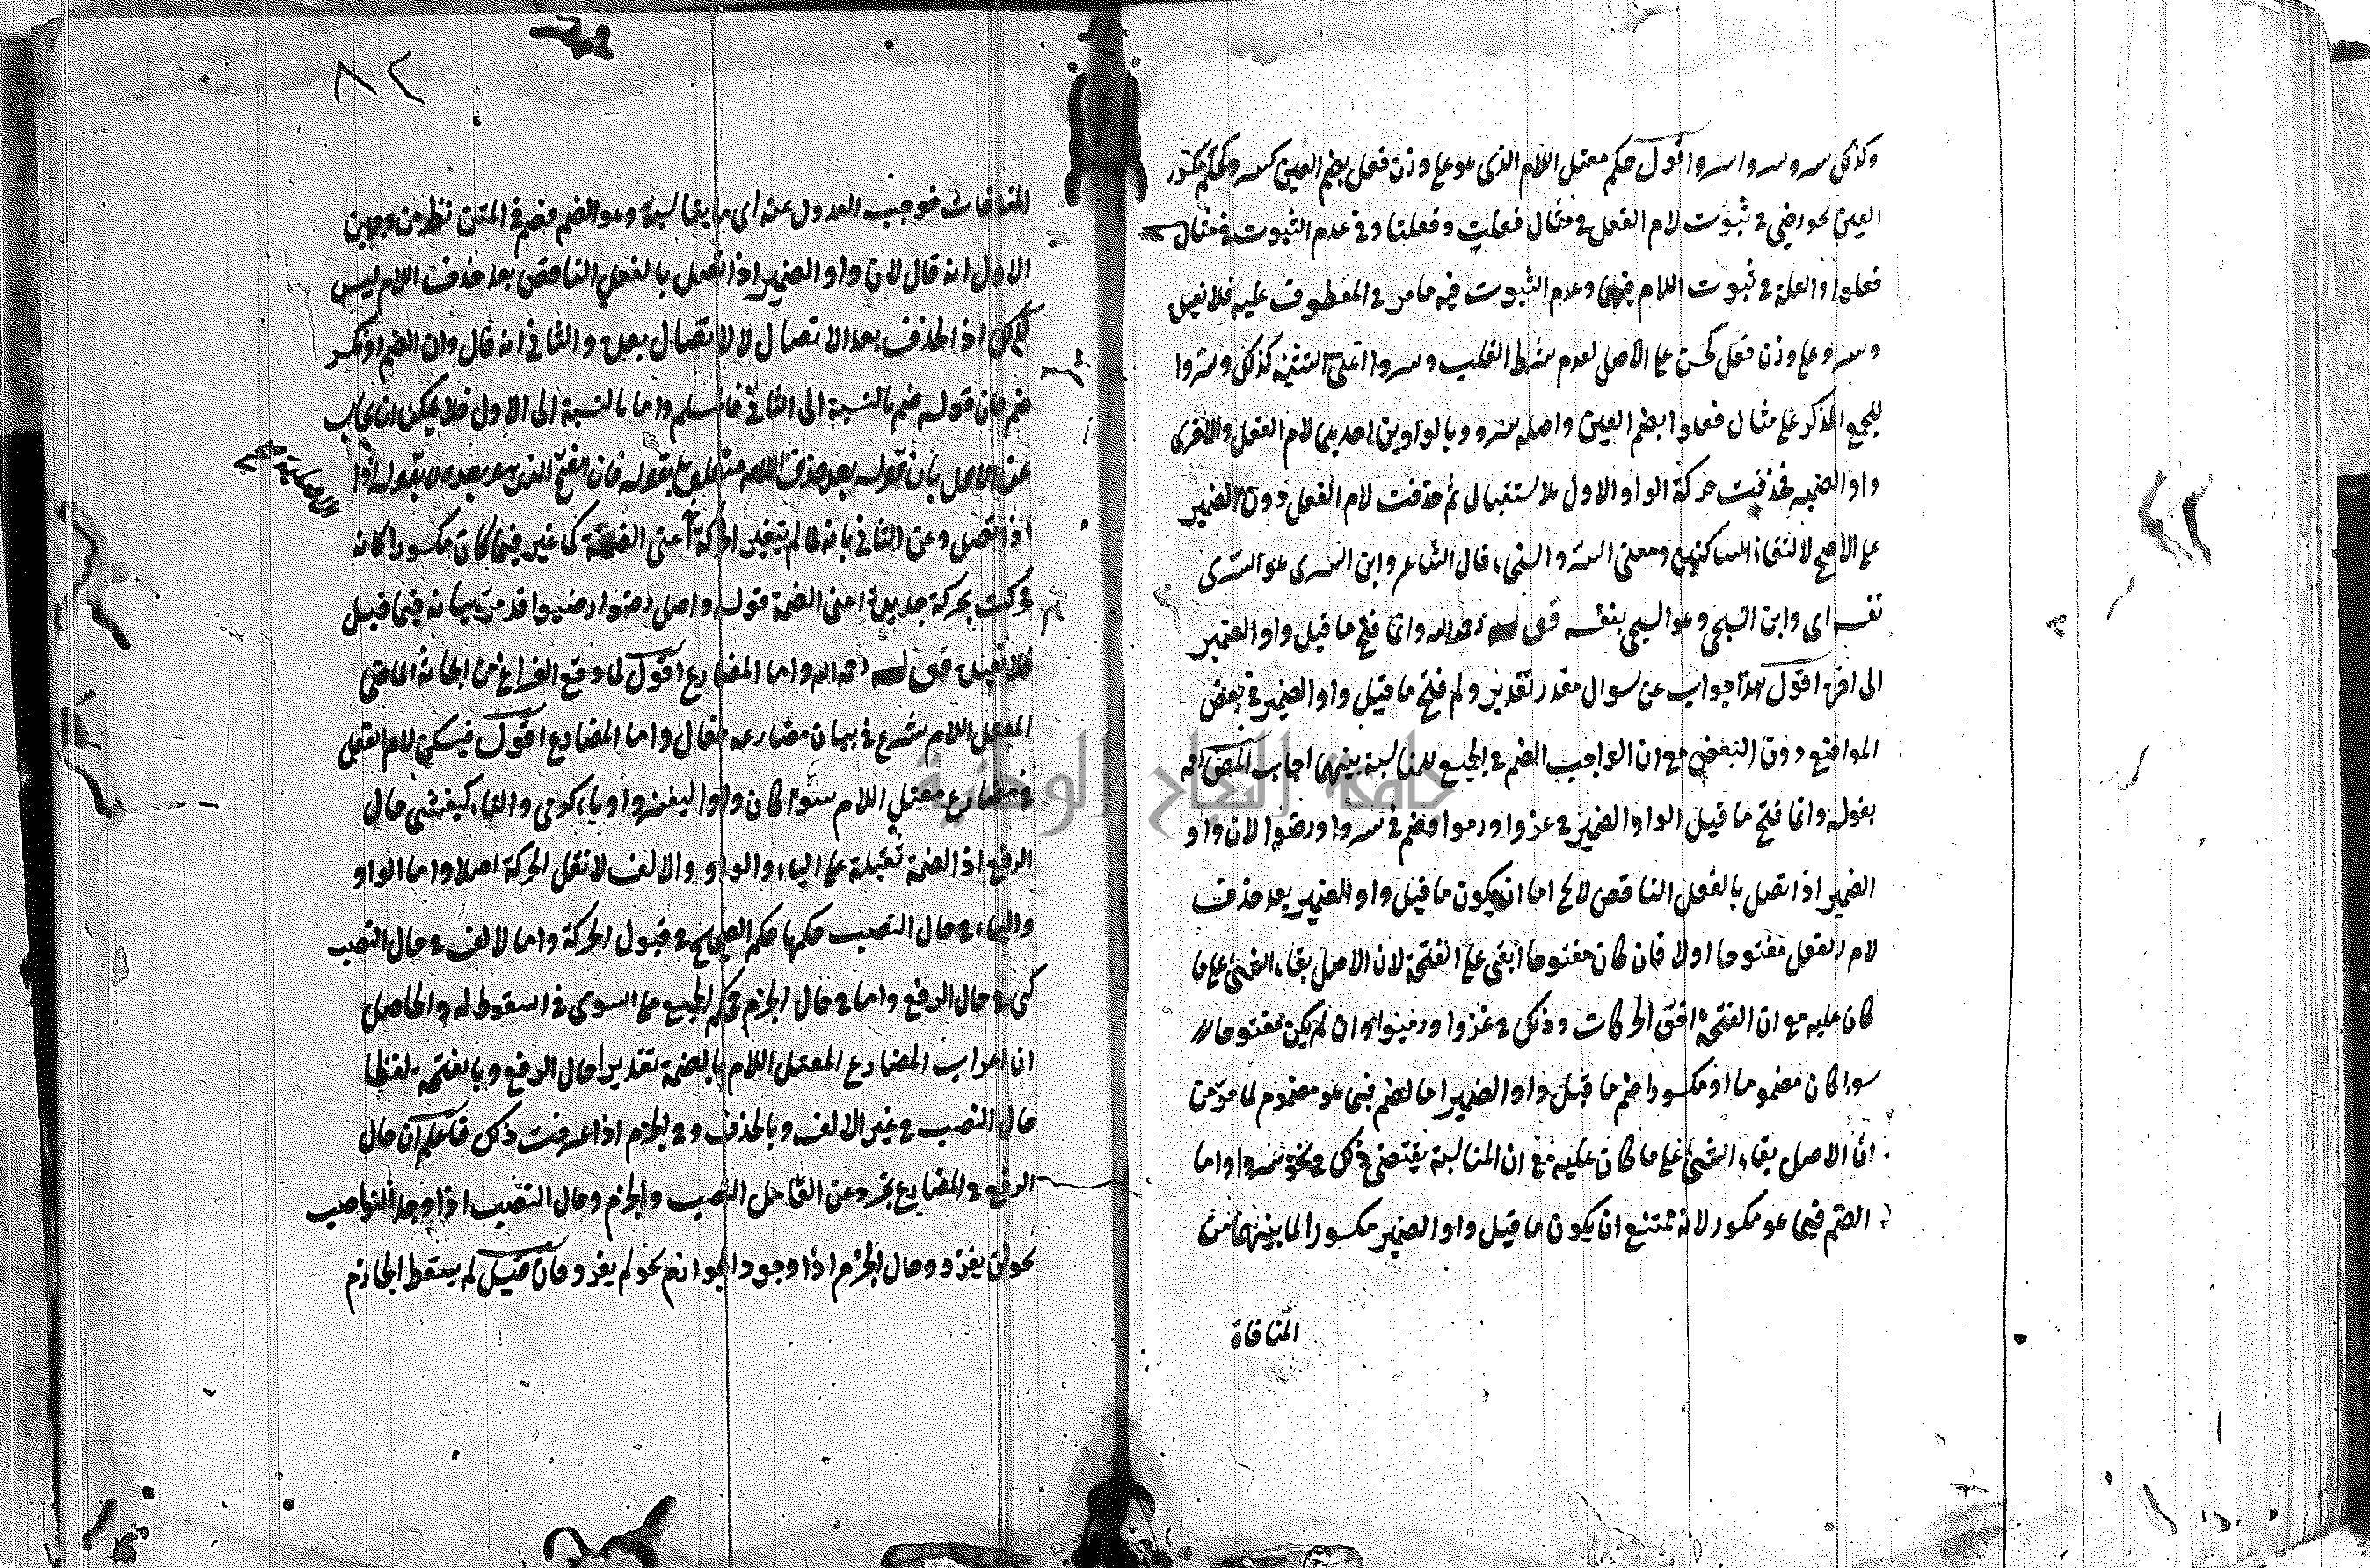 وكذلك سرو سروا سروا اقول حكم معتل اللام الذى هو على وزن فعل بضم العين كسرو كحكم مكسور
العين نحو رضى فى ثبوت لام الفعل فى مثال فعلت وفعلتا وفى عدم الثبوت فى مثال
فعلوا والعلة فى ثبوت اللام فيهما وعدم الثبوت فيه ما مر فى المعطوف عليه فلا نعيل
وسرو على وزن فعل كحسن على الاصل لعدم شرط القلب وسروا اعنى التثنية كذلك وسروا
للجمع المذكر على مثال فعلوا بضم العين واصله سروو بالواوين احديهما لام الفعل والاخرى
واو الضمير فحذفت حركة الواو الاول للاستقبال ثم حذفت لام الفعل دون الضمير
على الاصح لالتقاء الساكنين ومعنى السرو السخى، قال الشاعر وابن السرى هو السرى
نفسه اى وابن السخى هو السخى بنفسه قوله رحمه الله وانما فتح ما قبل واو الضمير
الى اخره اقول هذا جواب عن سوال مقدر تقديره لم فتح ما قبل واو الضمير فى بعض
المواضع دون البعض مع ان الواجب الضم فى الجميع للمناسبة بينهما اجاب المص رحمه
بقوله وانما فتح ما قبل الواو الضمير فى غزوا ورموا وضم فى سروا ورضوا لان واو
الضمير اذا اتصل بالفعل الناقص لا يخ اما ان يكون ما قبل واو الضمير بعد حذف
لام الفعل مفتوحا اولا فان كان مفتوحا ابقى على الفتحة لان الاصل بقاء الشئ على ما
كان عليه مع ان الفتحة اخف الحركات وذلك فى غزوا ورميوا وان لم يكن مفتوحا
سواء كان مضموما او مكسورا ضم ما قبل واو الضمير اما الضم فيما هو مضموم لما مر من
ان الاصل بقاء الشئ على ما كان عليه مع ان المناسبة يقتضى ذلك فى نحو سروا واما
الضم فيما هو مكسور لانه يمتنع ان يكون ما قبل واو الضمير مكسورا لما بينهما من
المنافاة
٨٢
المنافات فوجب العدول عنه اى ما يناسبه وهو الضم فضم فى المتن نظر من وجهين
الاول انه قال لان واو الضمير اذا اتصل بالفعل الناقص بعد حذف اللام ليس
كذلك اذ الحذف بعد الاتصال لا الاتصال بعده والثانى انه قال وان انضم او كسر
ضم فان قوله ضم بالنسبة الى الثانى فمسلم واما بالنسبة الى الاول فلا يمكن ان يجاب
عن الاول بان قوله بعد حذف اللام متعلق بقوله فان انفتح الذى هو بعده لا بقوله اذا
اذا اتصل وعن الثانى بانه لما لم يتغير الحركة اعنى الضمة كما غير فيما كان مكسورا كانه
حركت بحركة جديدة اعنى الضمة قوله واصل رضوا رضيوا قد مر بيانه فيما قبل
فلا نعيل قوله رحمه الله واما المضارع اقول لما وقع الفراغ من ابحاث الماضى
المعتل اللام شرع فى بيان مضارعه فقال واما المضارع اقول فيسكن لام الفعل
فى مضارع معتل اللام سواء كان واوا ليغزو او ياء كيرمى والفاء كيخشى حال
الرفع اذ الضمة ثقيلة على الياء والواو والالف لا تقبل الحركة اصلا واما الواو
والياء فى حال النصب حكمها حكم الصحيح فى قبول الحركة واما الالف فى حال النصب
كما فى حال الرفع واما فى حال الجزم فحكم الجميع على السوى فى اسقوط له والحاصل
ان اعراب المضارع المعتل اللام بالضمة تقديرا حال الرفع وبالفتحة لفظا
حال النصب فى غير الالف وبالحذف فى الجزم اذا عرفت ذلك فاعلم ان حال
الرفع فى المضارع بتجرد عن العامل النصب والجزم وحال النصب اذا وجد النواصب
نحو لن يغزو وحال الجزم اذا وجود الجوازم نحو لم يغز وفان قيل لم يسقط الجازم
جامعة النجاح الوطنية